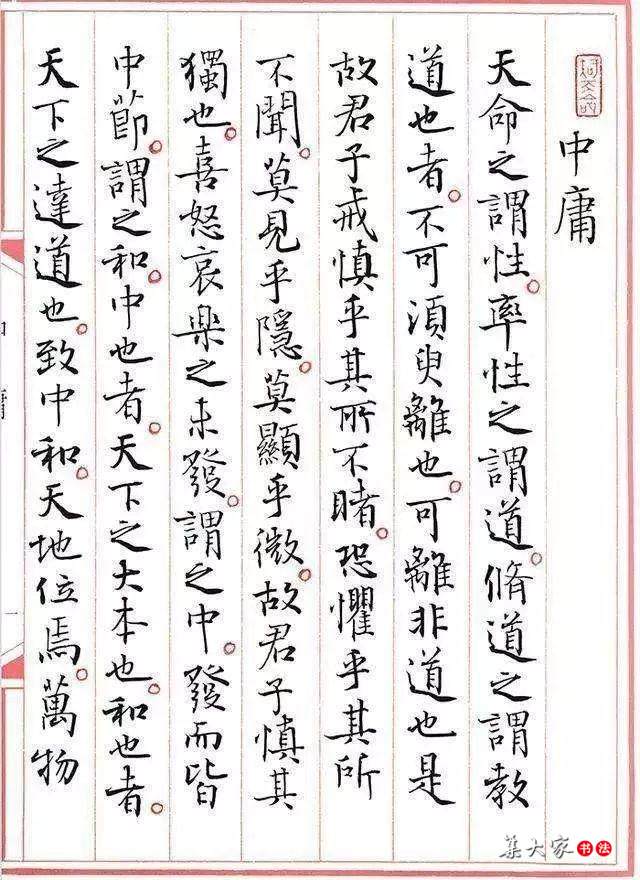 中庸
天命之謂性。率性之謂道。脩道之謂教
道也者。不可須臾離也。可離非道也是
故君子戒慎乎其所不睹。恐懼乎其所
不聞。莫見乎隱。莫顯乎微。故君子慎其
獨也。喜怒哀樂之未發。謂之中。發而皆
中節。謂之和。中也者。天下之大本也。和也者。
天下之達道也。致中和。天地位焉。萬物
集大家书法